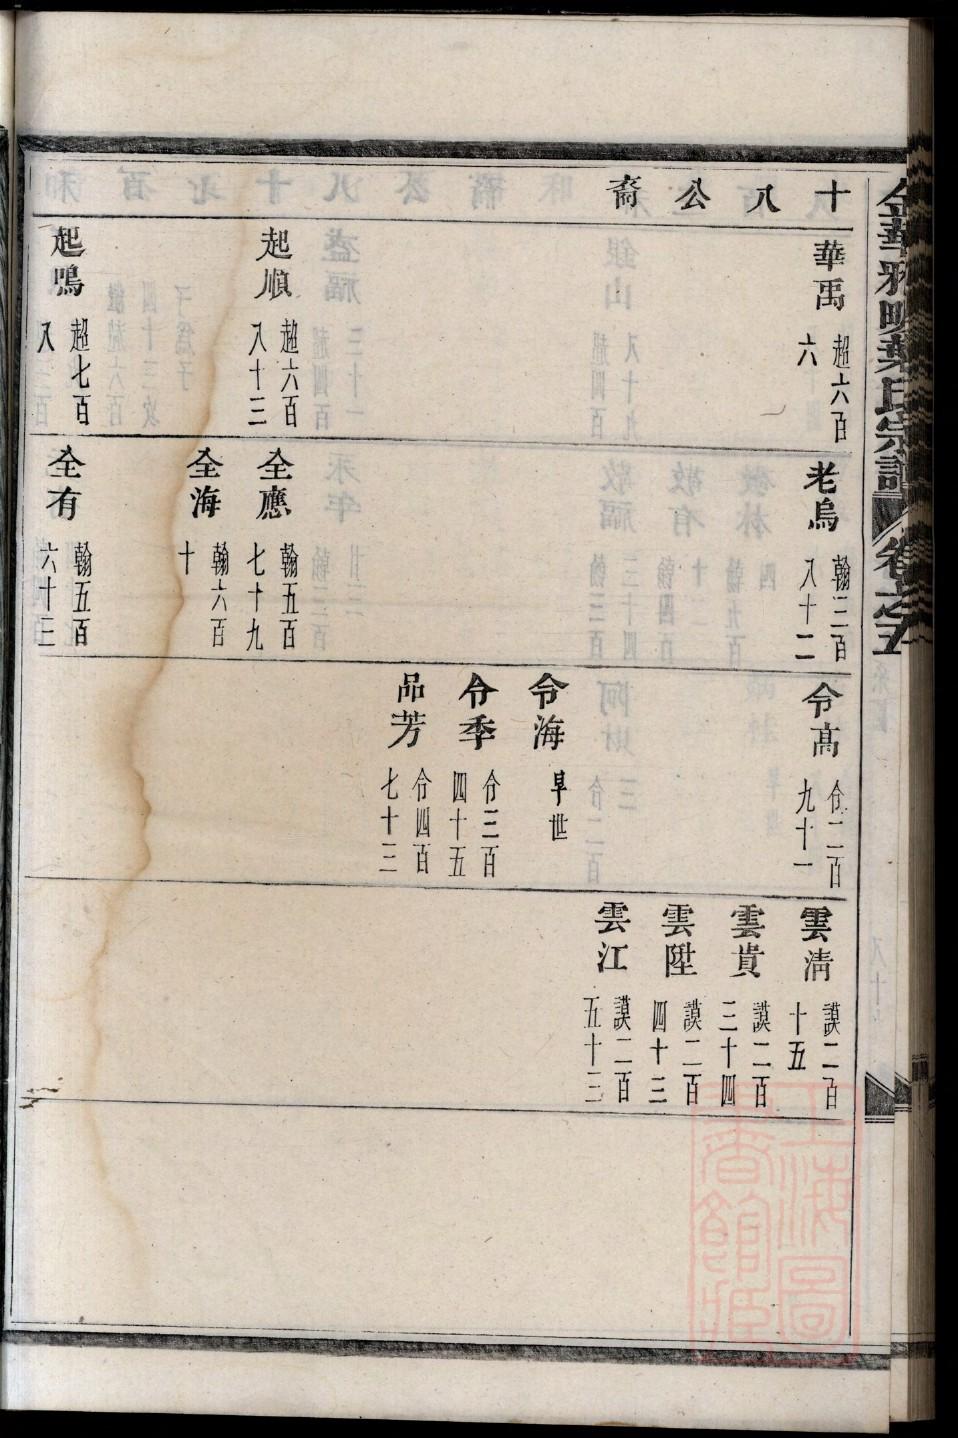 十八公裔
華禹 超六百六
起順 超六百八十三
起鳴 超七百八
老烏 翰三百八十二
全應 翰五百七十九
全海 翰六百十
全有 翰五百六十三
令高 令二百九十一
令海 早世
令季 令三百四十五
品芳 令四百七十三
雲清 謨二百十五
雲貴 謨二百三十四
雲陞 謨二百四十三
雲江 謨二百五十三
宗譜
卷之五